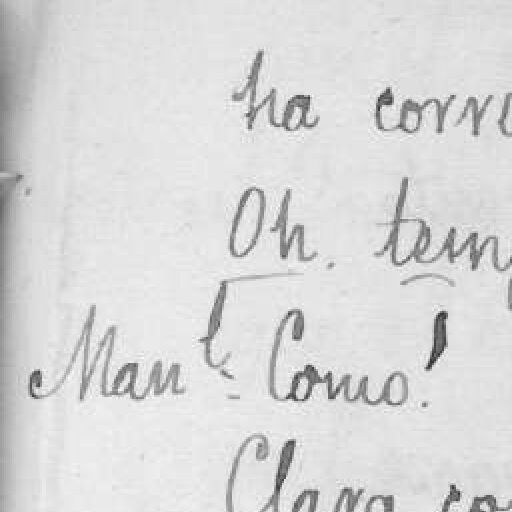 ha corre
Oh. temp
Manl: Como!
Clara co